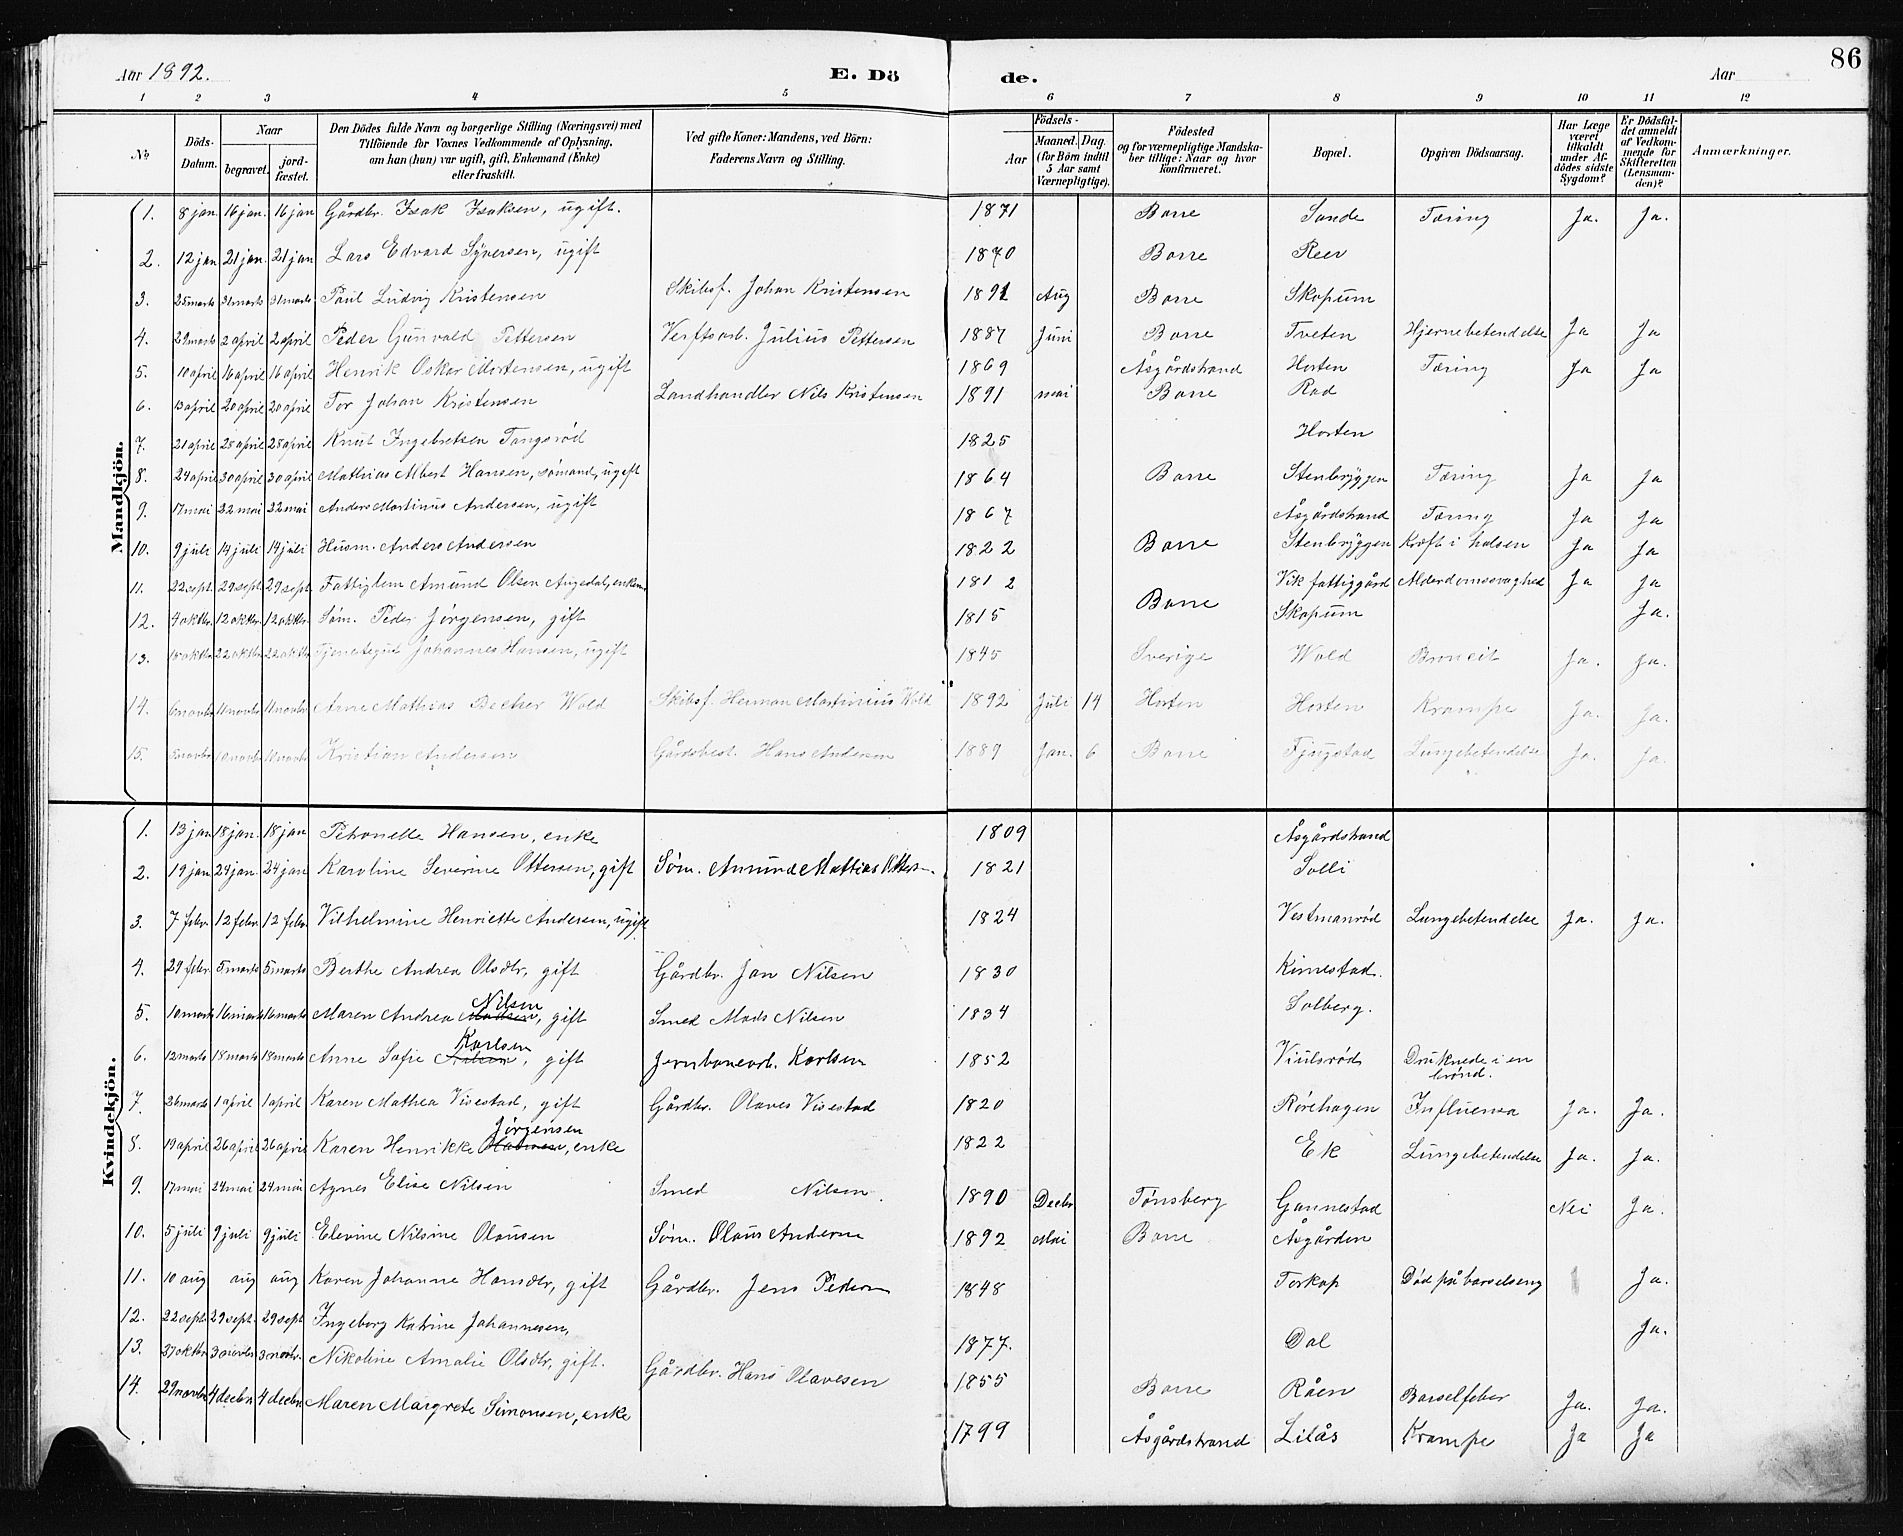 86
Aar 1892.
E. Dö de.
Aar
1 2 3 4 5 6 7 8 9 10 11 12
No
Döds-Datum.
Naar
begravet.
jord-fæstet.
Den Dödes fulde Navn og borgerlige Stilling (Næringsvei) med
Tilföiende for Voxnes Vedkommende af Oplysning,
om han (hun) var ugift, gift, Enkemand (Enke)
eller fraskilt.
Ved gifte Koner: Mandens, ved Börn:
Faderens Navn og Stilling.
Födsels -
Aar
Maaned. Dag.
(for Börn indtil
5 Aar samt
Værnepligtige).
Födested
og for værnepligtige Mandska-
ber tillige: Naar og hvor
konfirmeret.
Bopæl.
Opgiven Dödsaarsag.
Har Læge
været
tilkaldt
under Af-
dödes sidste
Sygdom?
Er Dödsfal-
det anmeldt
af Vedkom-
mende for
Skifteretten
(Lensman-
den)?
Anmærkninger.
Mandkjön.
1. 8 jan. 16 jan. 16 jan Gårdbr. Isak Isaksen, ugift. 1871 Borre Sande Tæring Ja. Ja.
2. 12 jan 21 jan. 21 jan Lars Edvard Syversen, ugift 1870 Borre Reer
3. 25 marts 31 marts 31 marts Paul Ludvig Kristensen Skibsf. Johan Kristensen 1891 Aug Borre Skopum
4. 29 marts 2 april 2 april Peder Gunvald Pettersen Verftsarb. Julius Pettersen 1887 Juni Borre Tveten Hjernebetendelse Ja Ja
5. 10 april 16 april 16 april Henrik Oskar Mortensen, ugift 1869 Åsgårdstrand Horten Tæring Ja Ja
6. 13 april 20 april 20 april Tor Johan Kristensen Landhandler Nils Kristensen 1891 mai Borre Rød
7. 21 april 28 april 28 april Knut Ingebretsen Tangsrød 1825 Horten
8. 24 april 30 april 30 april Mathias Albert Hansen, sømand, ugift 1864 Borre Stenbryggen Tæring Ja Ja
9. 17 mai 22 mai 22 mai Anders Martinus Andersen, ugift 1867 Åsgårdstrand Tæring Ja Ja
10. 9 juli 14 juli 14 juli Husm. Anders Andersen 1822 Borre Stenbryggen Kræft i halsen Ja Ja
11. 22 sept. 29 sept. 29 sept. Fattiglem Amund Olsen Augedal, enkem. 1812 Vik fattiggård Alderdomssvaghed Ja Ja
12. 4 oktbr. 12 oktbr. 12 oktbr. Søm. Peder Jørgensen, gift 1815 Borre Skopum Ja.
13. 18 oktbr 22 oktbr 22 oktbr Tjenestegut Johannes Hansen, ugift 1845 Sverige Wold Ja. Ja.
14. 6 novbr 11 novbr 11 novbr Arne Mathias Becher Wold Skibsf. Herman Martinius Wold 1892 Juli 14 Horten Horten Krampe Ja. Ja.
15. 5 novbr 10 novbr 11 novbr Kristian Andersen Gårdsbest. Hans Andersen 1889 Jan. 6 Borre Fjugstad Lungebetendelse Ja. Ja.
Kvindekjön.
1. 13 jan 18 jan. 18 jan Petronelle Hansen, enke 1809 Åsgårdstrand
2. 19 jan 24 jan. 24 jan Karoline Severine Ottersen, gift Søm. Amund Mattias Otters 1821 Solli
3. 7 febr. 12 febr. 12 febr. Vilhelmine Henriette Andersen, ugift 1824 Vestmanrød Lungebetendelse Ja. Ja.
4. 29 febr. 5 marts 5 marts Berthe Andrea Olsdtr, gift Gårdbr. Jan Nilsen 1830 Kinnestad.
5. 10 marts 16 marts 16 marts Maren Andrea Madsen Nilsen, gift Smed Mads Nilsen 1834 Solberg.
6. 12 marts 18 marts 18 marts Anne Sofie Karlsen, gift Jernbanearb. Karlsen 1852 Viulsrød Druknede i en brønd.
7. 26 marts 1 april 1 april Karen Mathea Visestad, gift Gårdbr. Olaves Visestad 1820 Rørehagen Influensa Ja. Ja.
8. 19 april 26 april 26 april Karen Henrikke Jørgensen, enke 1822 Ek Lungebetendelse Ja. Ja.
9. 17 mai 24 mai 24 mai Agnes Elise Nilsen Smed Nilsen. 1890 Decbr Tønsberg Gannestad Nei Ja.
10. 5 juli 9 juli 9 juli Elevine Nilsine Olausen Søm. Olaus Andersen 1892 Mai Borre Åsgården
11. 10 aug aug aug Karen Johanne Hansdtr, gift Gårdbr. Jens Peder 1848 Torkop Død på barselseng Ja.
12. 22 sept. 29 sept. 29 sept Ingeborg Katrine Johannesen, 1877. Dal Ja.
13. 27 oktbr 3 novbr 3 novbr. Nikoline Amalie Olsdtr, gift. Gårdbr. Hans Olavesen 1855 Borre Råen Barselfeber Ja. Ja.
14. 29 novbr 4 decbr 4 decbr Maren Margrete Simonsen, enke 1799 Åsgårdstrand Lilås Krampe Ja Ja